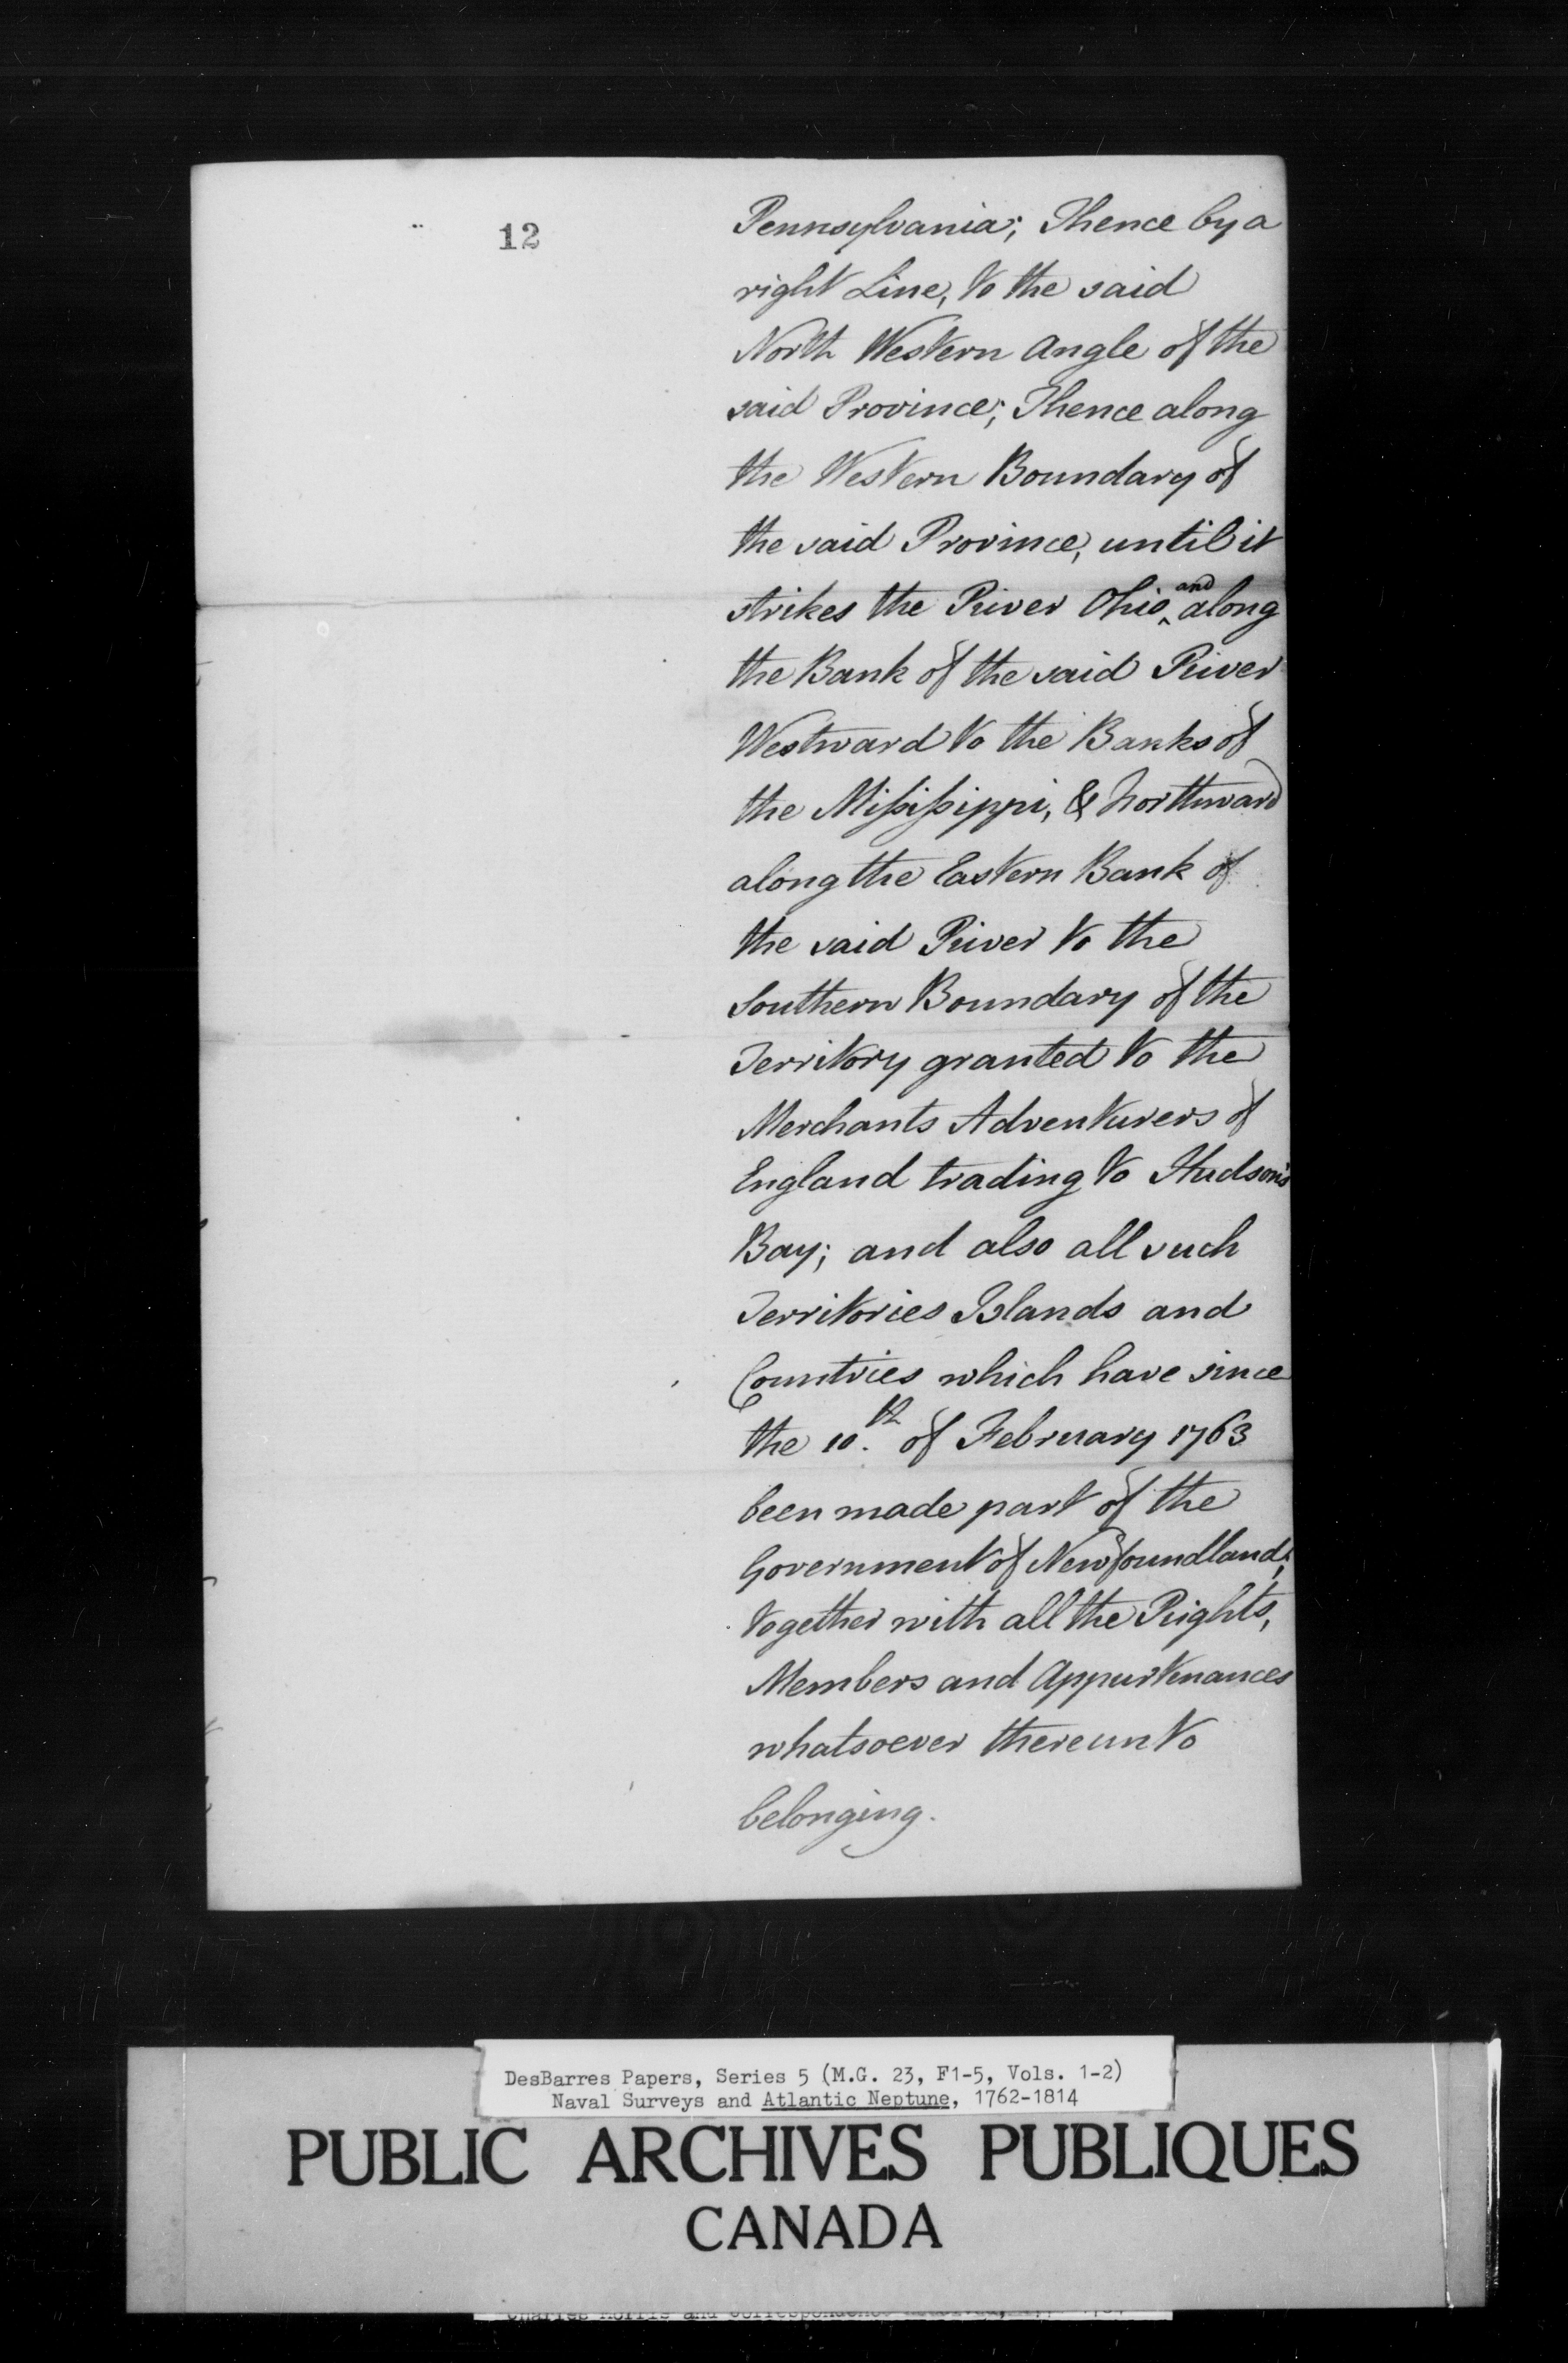 12
Pennsylvania; Thence by a
right Line, to the said
North Western Angle of the
said Province; Thence along
the Western Boundary of
the said Province, until it
strikes the River Ohio, and along
the Bank of the said River
Westward to the Banks of
the Mississippi, & Northward
along the Eastern Bank of
the said River to the
Southern Boundary of the
Territory granted to the
Merchants Adventurers of
England trading to Hudson's
Bay; and also all such
Territories Islands and
Countries which have since
the 10.th of February 1763
been made part of the
Government of Newfoundland;
together with all the Rights,
Members and Appurtenances
whatsoever thereunto
belonging.
DesBarres Papers, Series 5 (M.G. 23, F1-5, Vols. 1-2)
Naval Surveys and Atlantic Neptune, 1762-1814
PUBLIC ARCHIVES PUBLIQUES
CANADA